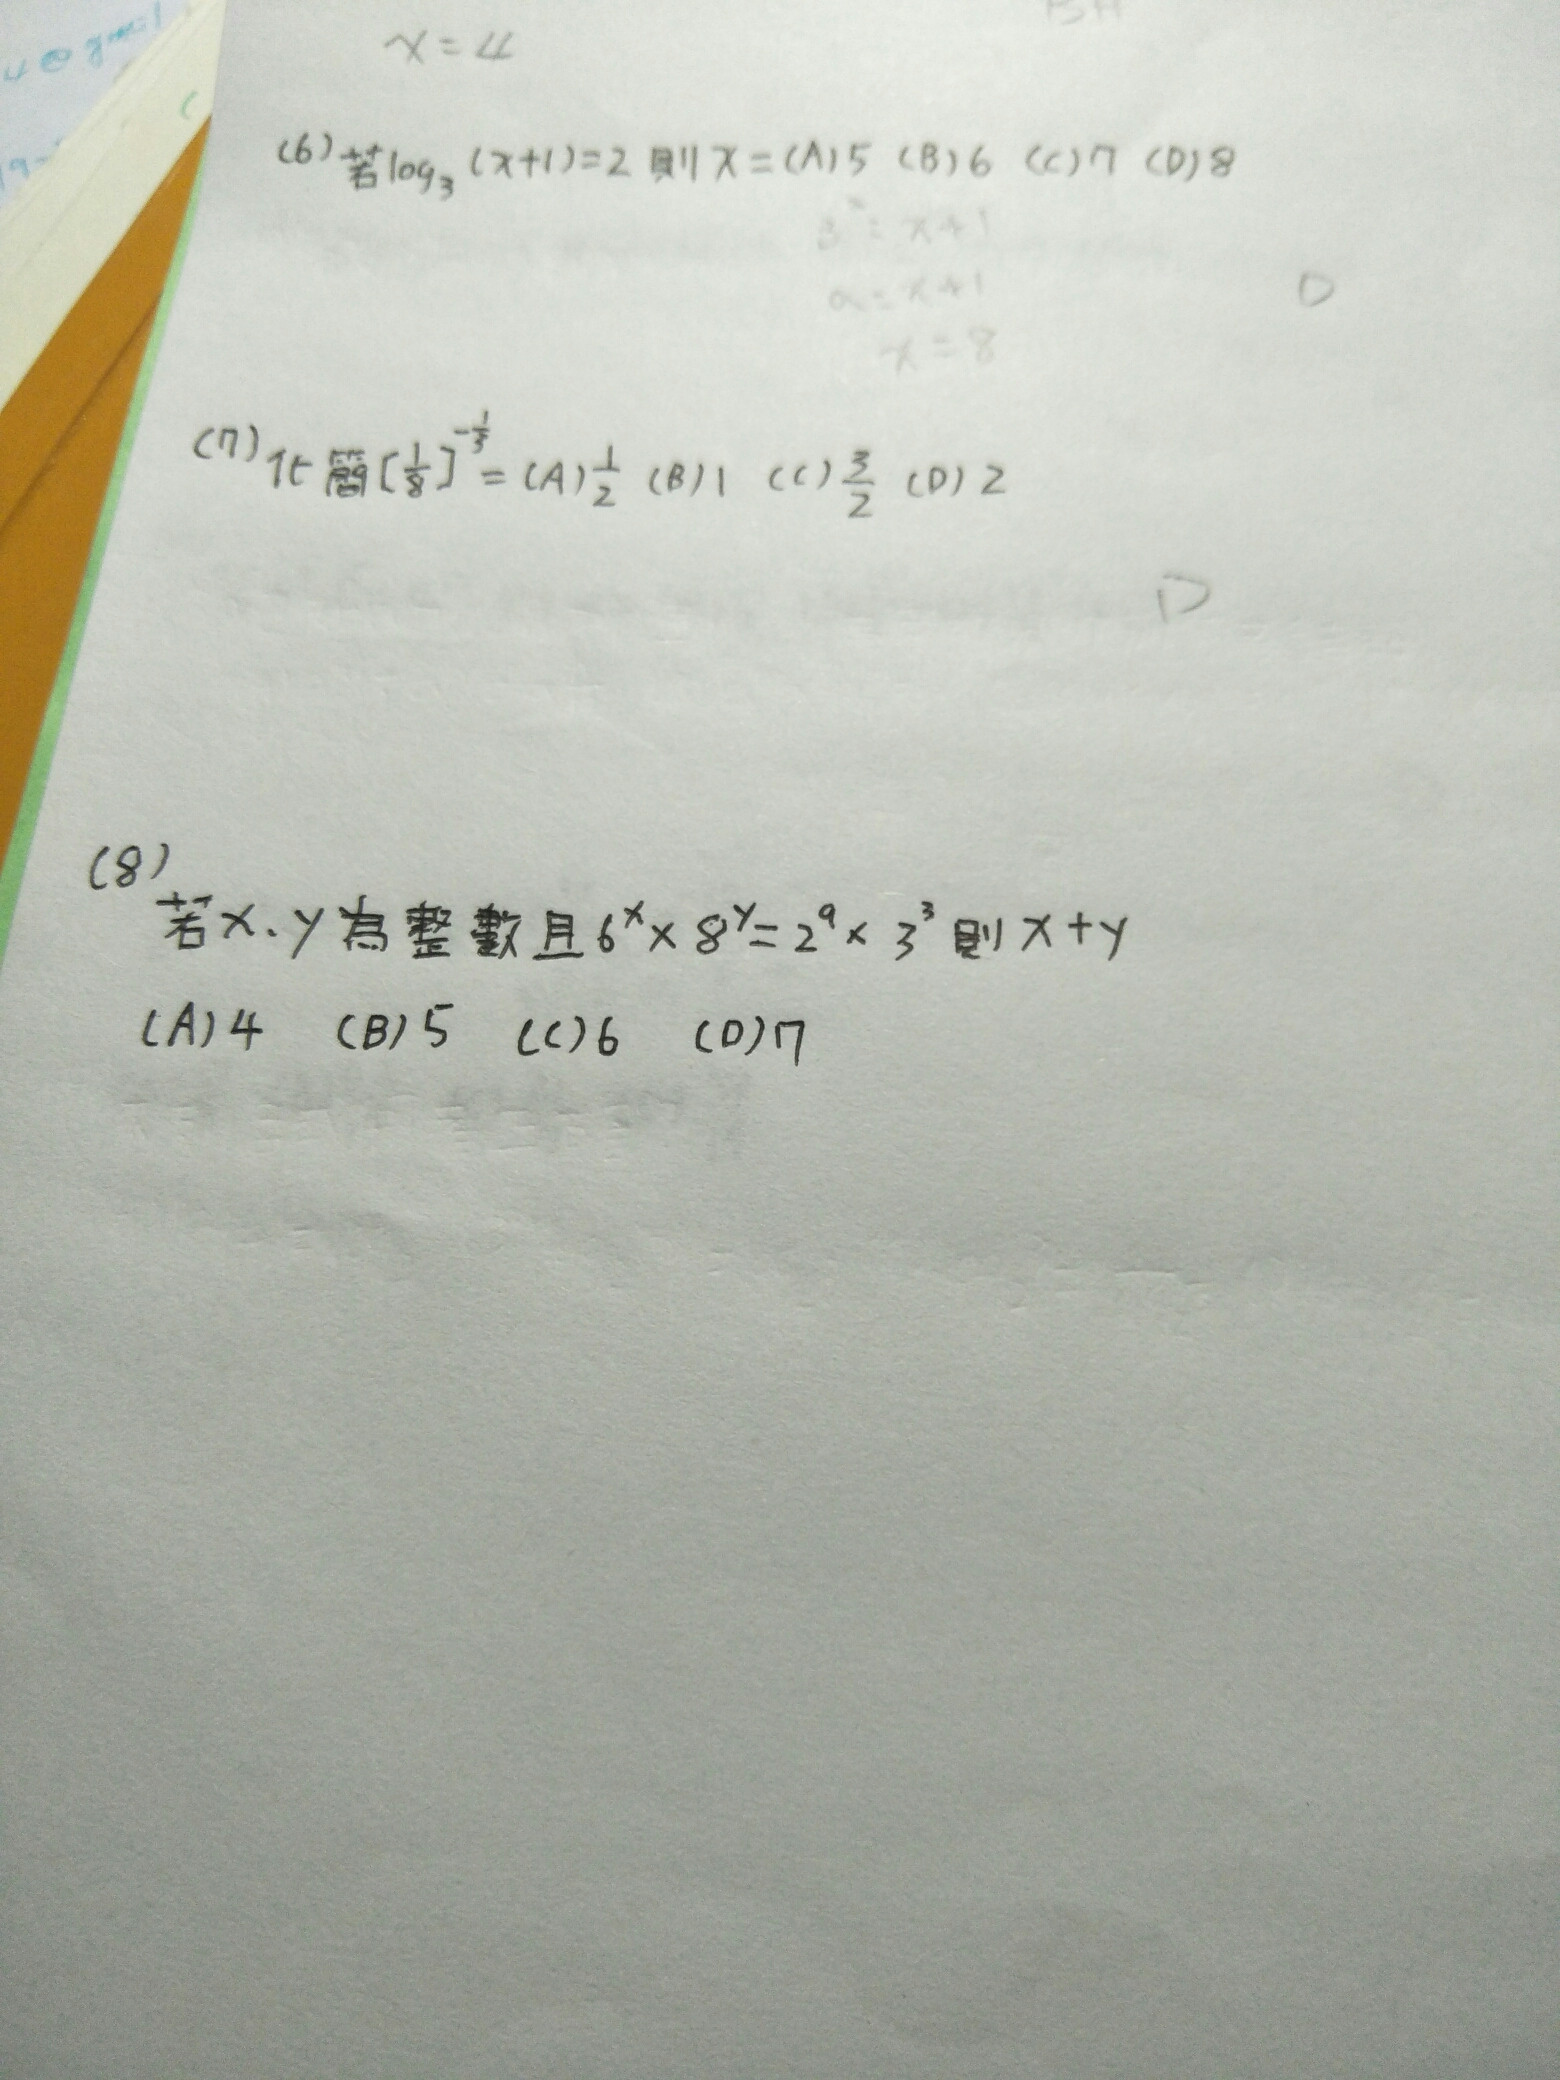 x = 4
(6) 若 log₃ (x+1) = 2 則 x = (A) 5 (B) 6 (C) 7 (D) 8
= x+1
= x+1
D
x = 8
(7) 化簡 [1/8]^(-1/3) = (A) 1/2 (B) 1 (C) 3/2 (D) 2
D
(8)
若 x、y 為整數且 6^x × 8^y = 2^9 × 3^3 則 x + y
(A) 4 (B) 5 (C) 6 (D) 7